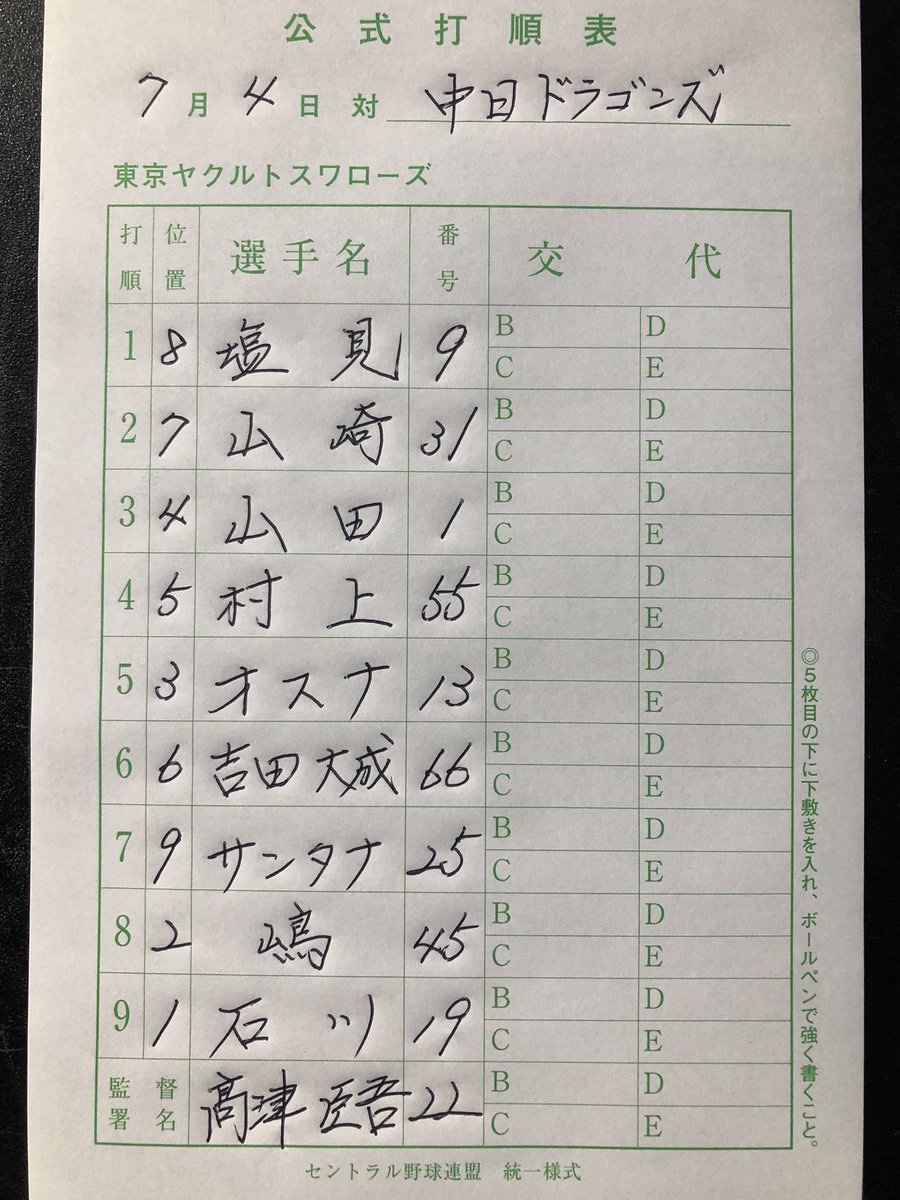 公式打順表
7月4日対 中日ドラゴンズ
東京ヤクルトスワローズ
打順 位置 選手名 番号 交代
1 8 塩見 9 B D C E
2 7 山崎 31 B D C E
3 4 山田 1 B D C E
4 5 村上 55 B D C E
5 3 オスナ 13 B D C E
6 6 吉田大成 66 B D C E
7 9 サンタナ 25 B D C E
8 2 嶋 45 B D C E
9 1 石川 19 B D C E
監督署名 髙津臣吾 22 B D C E
◎5枚目の下に下敷きを入れ、ボールペンで強く書くこと。
セントラル野球連盟 統一様式